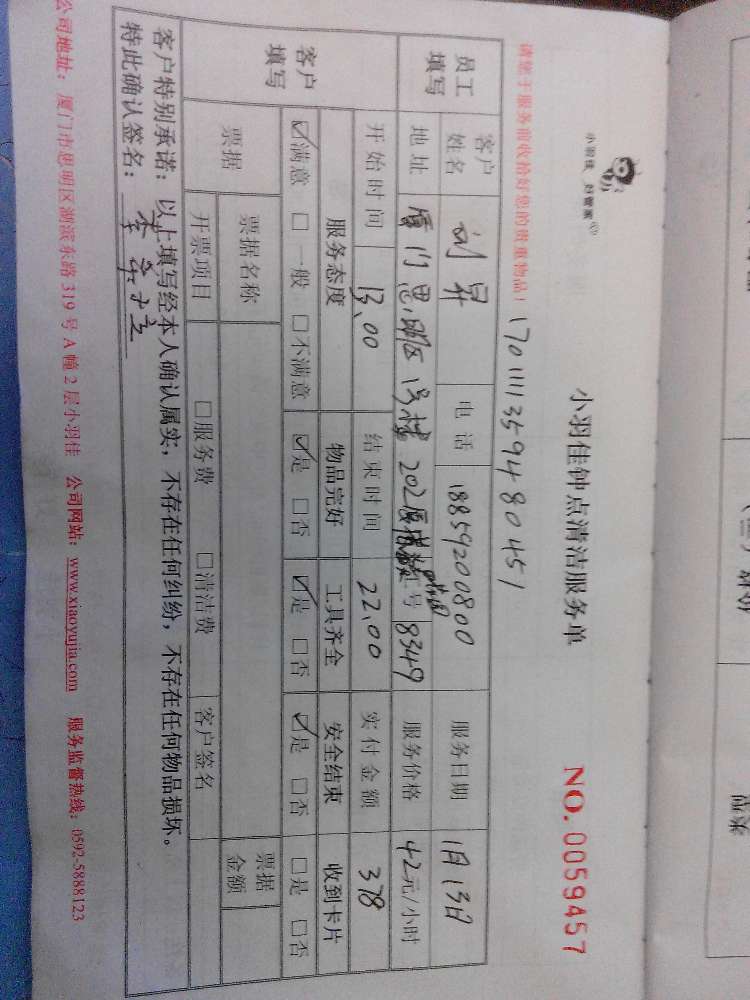 小羽佳钟点清洁服务单
小羽佳.好管家
NO.0059457
请您于服务前收拾好您的贵重物品！
170111359480451
员工填写
客户姓名 刘昇 电话 18859200800 服务日期 1月13日
地址 厦门思明区 1号楼 202 证号 8349 服务价格 42元/小时
客户填写
开始时间 13.00 结束时间 22.00 实付金额 378
服务态度 物品完好 工具齐全 安全结束 收到卡片
☑满意 □一般 □不满意 ☑是 □否 ☑是 □否 ☑是 □否 □是 □否
票据 票据名称 票据金额
开票项目 □服务费 □清洁费 客户签名
客户特别承诺：以上填写经本人确认属实，不存在任何纠纷，不存在任何物品损坏。
特此确认签名：
公司地址：厦门市思明区湖滨东路319号A幢2层小羽佳 公司网站：www.xiaoyujia.com 服务监督热线：0592-5888123